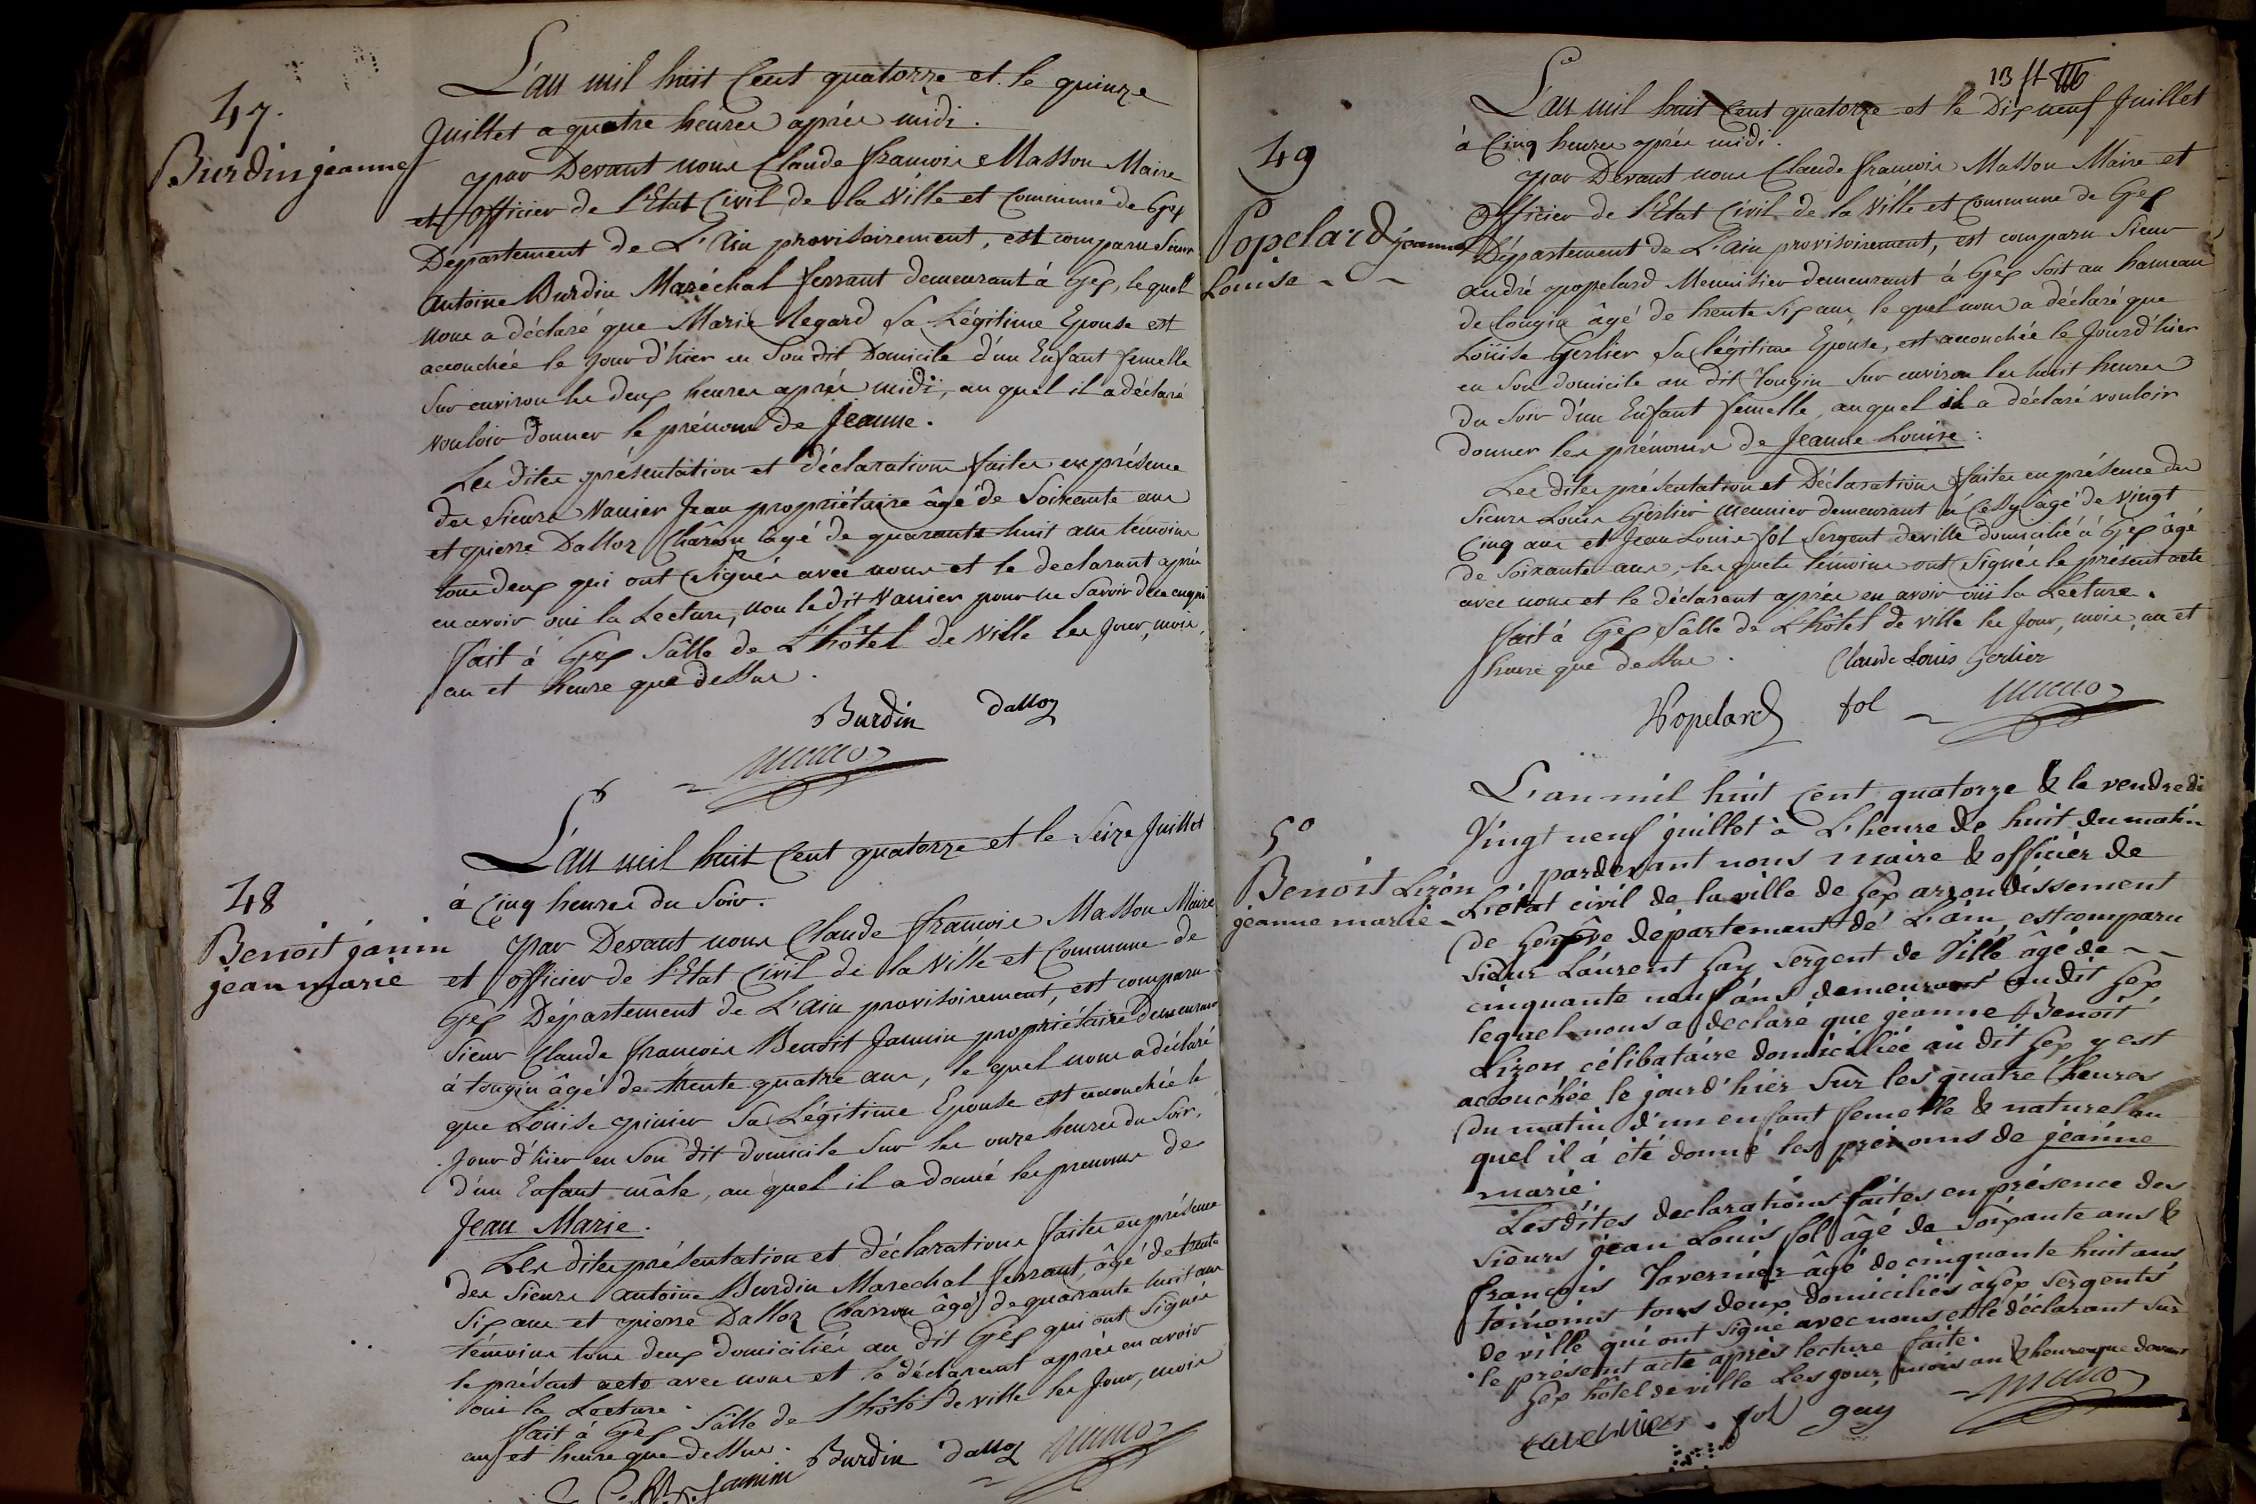 47.
Burdin jeanne
L'an mil huit Cent quatorze et le quinze
Juillet a quatre heures après midi.
par Devant nous Claude francois Masson Maire
et officier de l'Etat Civil de la Ville et Commune de Gex
Département de L'Ain provisoirement, est comparu Sieur
antoine Burdin Maréchal ferrant demeurant à Gex, lequel
nous a déclaré que Marie Regard sa Légitime Epouse est
accouchée le jour d'hier en son dit Domicile d'un Enfant femelle
sur environ les deux heures après midi, au quel il a déclaré
vouloir donner le prénom de Jeanne.
Les dites présentation et déclaration faites en présence
des sieurs Vanier Jean propriétaire âgé de Soixante ans
et pierre Dalloz Charon âgé de quarante huit ans temoins
tous deux qui ont Signés avec nous et le declarant après
en avoir oui la Lecture, non le dit Vanier pour ne Savoir de ce enquis
fait à Gex Salle de L'hôtel de Ville les jour, mois,
an et heure que dessus.
Burdin Dalloz
48
Benoit janin
jean marie
L'an mil huit Cent quatorze et le Seize Juillet
à Cinq heures du Soir.
par Devant nous Claude francois Masson Maire
et officier de l'Etat Civil de la Ville et Commune de
Gex Département de L'Ain provisoirement, est comparu
Sieur Claude francois Benoit Jannin propriétaire demeurant
à tougin âgé de trente quatre ans, le quel nous a déclaré
que Louise pinier Sa Légitime Epouse est accouchée le
Jour d'hier en Son dit domicile Sur les onze heures du Soir,
d'un Enfant mâle, au quel il a donné les prenoms de
Jean Marie.
Les dites présentation et déclaration faites en présence
des Sieurs antoine Burdin Marechal ferrant, âgé de trente
Six ans et pierre Dalloz Charron âgé de quarante huit ans
témoins tous deux domiciliés au dit Gex qui ont Signés
le présent acte avec nous et le déclarant après en avoir
oui la Lecture.
fait à Gex Salle de l'hôtel de ville les Jour, mois
an et heure que dessus.
Jannin Burdin Dalloz
13
49
Popelard jeanne
Louise
L'an mil huit Cent quatorze et le Dix neuf Juillet
à Cinq heures après midi.
par Devant nous Claude francois Masson Maire et
Officier de l'Etat Civil de la Ville et Commune de Gex
Département de L'ain provisoirement, est comparu Sieur
andré popelard Menuisier demeurant à Gex Soit au hameau
de tougin âgé de trente Six ans, le quel nous a déclaré que
Louise Gerlier Sa légitime Epouse, est accouchée le Jourd'hier
en Son domicile au dit Tougin Sur environ les huit heures
du Soir d'un Enfant femelle, auquel il a déclaré vouloir
donner les prénoms de Jeanne Louise.
Les dites présentation et Déclaration faites en présence des
Sieurs Louis Gerlier Meunier demeurant à Cessy âgé de vingt
Cinq ans et Jean Louis fol Sergent deville domicilié à Gex âgé
de Soixante ans, les quels témoins ont Signés le présent acte
avec nous et le déclarant après en avoir oüi la Lecture.
fait à Gex Salle de L'hôtel de ville les Jour, mois, an et
heure que dessus. Claude Louis Gerlier
Popelard fol
50
Benoit Lizon
jeanne marie
L'an mil huit Cent quatorze & le vendredi
Vingt neuf juillet à L'heure de huit du matin
pardevant nous maire & officier de
L'etat civil de la ville de Gex arrondissement
de Genêve département de L'ain, est comparu
sieur Laurent Gay sergent de Ville âgé de
cinquante neuf ans demeurant audit Gex
lequel nous a declaré que jeanne Benoit
Lizon célibataire domiciliée au dit Gex y est
accouchée le jourd'hier sur les quatre heures
du matin d'un enfant femelle & naturel au
quel il à été donné les prénoms de jeanne
marie.
Lesdites declarations faites en présence des
sieurs jean Louis fol âgé de soixante ans &
françois Tavernier âgé de cinquante huit ans
témoins tous deux domiciliés à Gex sergents
de ville qui ont signé avec nous et le déclarant sur
le présent acte après lecture faite.
Gex hôtel de ville Les jour, mois an & heure que devant
tavernier fol gay